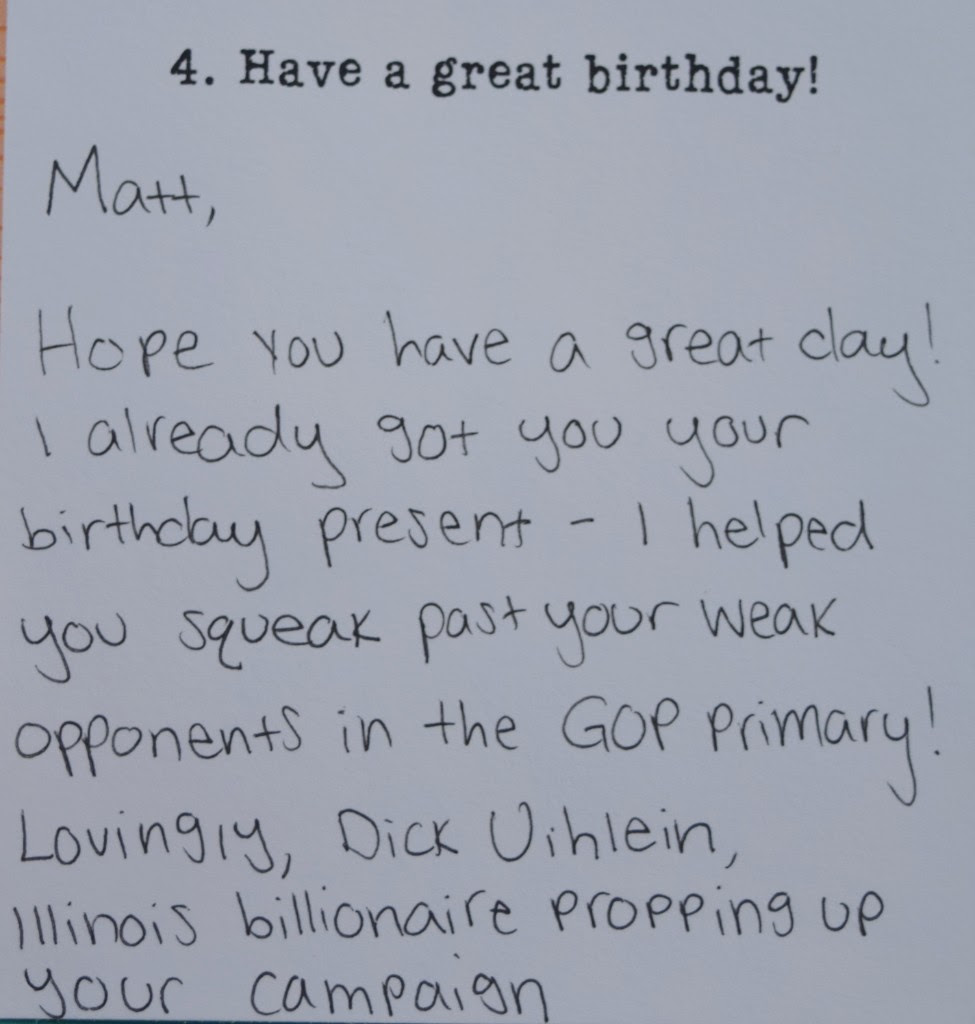 4. Have a great birthday!
Matt,
Hope you have a great day!
I already got you your
birthday present - I helped
you squeak past your weak
opponents in the GOP primary!
Lovingly, Dick Uihlein,
Illinois billionaire propping up
your campaign